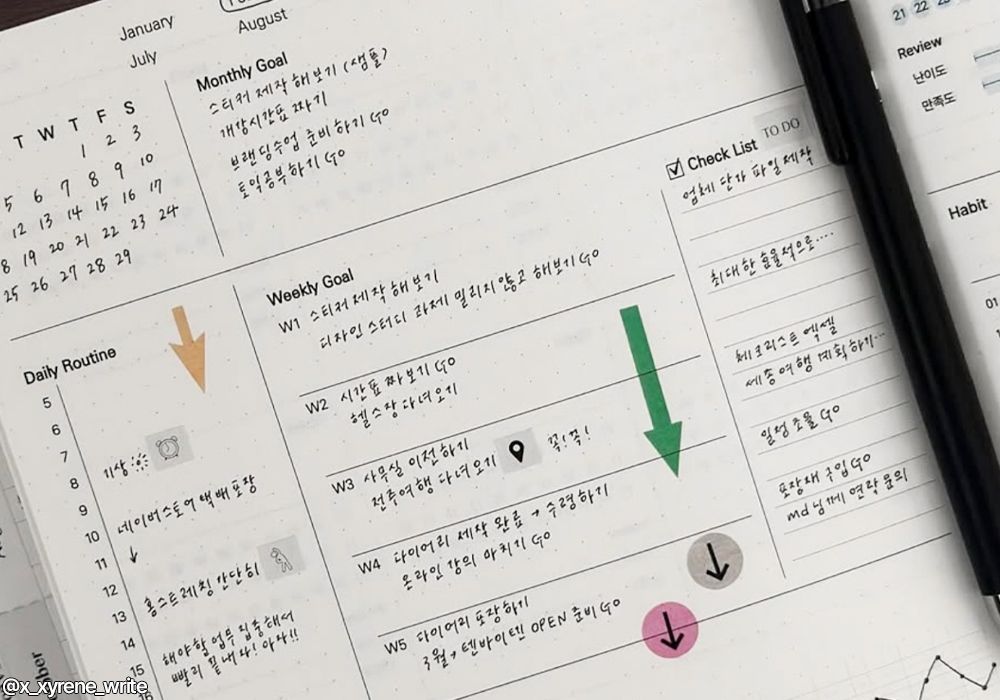 January
July
August
T W T F S
1 2 3
5 6 7 8 9 10
12 13 14 15 16 17
8 19 20 21 22 23 24
25 26 27 28 29
Monthly Goal
스티커 제작 해보기 (샘플)
개상시간표 짜기
브랜딩수업 준비하기 GO
토익공부하기 GO
Daily Routine
5
6
7
8
9
10
11
12
13
14
15
기상
네이버스토어 택배포장
↓
홈스트레칭 간단히
해야할 업무 집중해서
빨리 끝내자! 아자!!
Weekly Goal
W1 스티커 제작 해보기
디자인 스터디 과제 밀리지 않고 해보기 GO
W2 시간표 짜보기 GO
헬스장 다녀오기
W3 사무실 이전하기
전주여행 다녀오기 꼭!꼭!
W4 다이어리 제작 완료 → 수령하기
온라인 강의 마치기 GO
W5 다이어리 포장하기
3월 → 텐바이텐 OPEN 준비 GO
Check List TO DO
업체 단가 파일 제작
최대한 효율적으로....
체크리스트 엑셀
세종여행 계획하기...
일정 조율 GO
포장재 구입 GO
md님께 연락 문의
21 22
Review
난이도
만족도
Habit
01
@x_xyrene_write